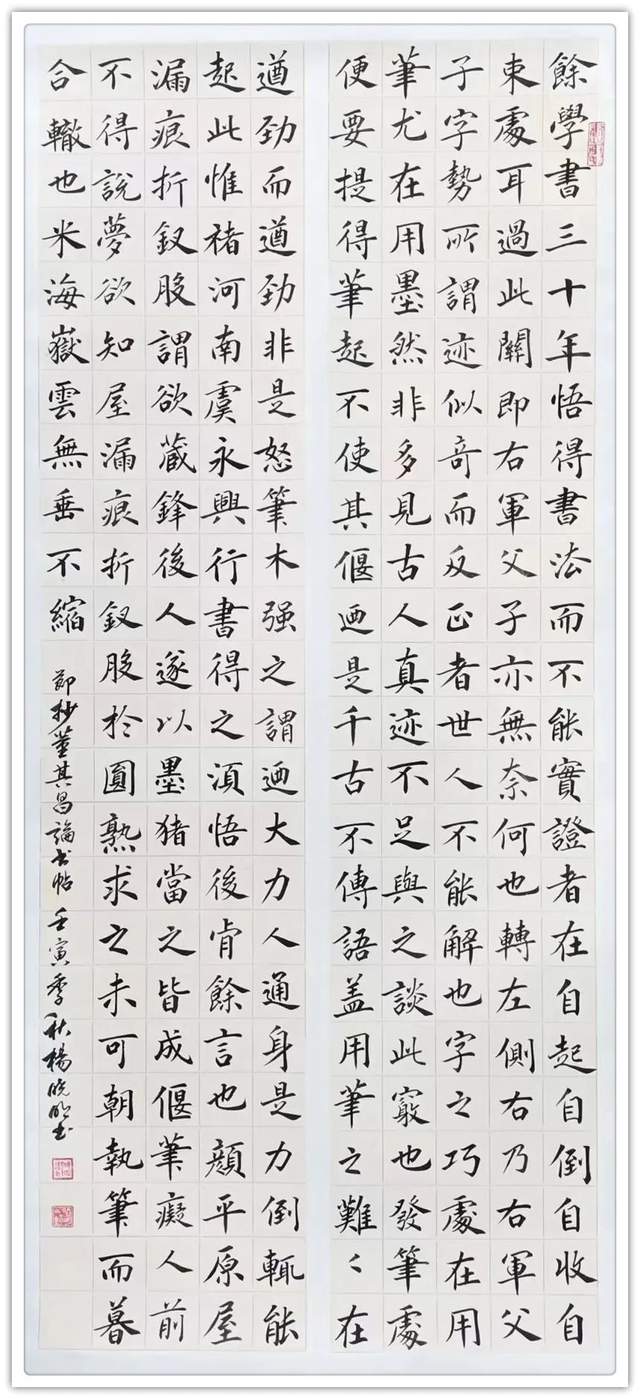 餘學書三十年悟得書法而不能實證者在自起自倒自收自
束處耳過此關即右軍父子亦無奈何也轉左側右乃右軍父
子字勢所謂迹似奇而反正者世人不能解也字之巧處在用
筆尤在用墨然非多見古人真迹不足與之談此竅也發筆處
便要提得筆起不使其偃迺是千古不傳語盖用筆之難〻在
遒劲而遒劲非是怒筆木强之謂迺大力人通身是力倒輒能
起此惟褚河南虞永興行書得之須悟後肯餘言也顏平原屋
漏痕折釵股謂欲藏鋒後人遂以墨猪當之皆成偃筆癡人前
不得說夢欲知屋漏痕折釵股於圓熟求之未可朝執筆而暮
合轍也米海嶽雲無垂不縮
節抄董其昌論书帖 壬寅季秋楊晓明书